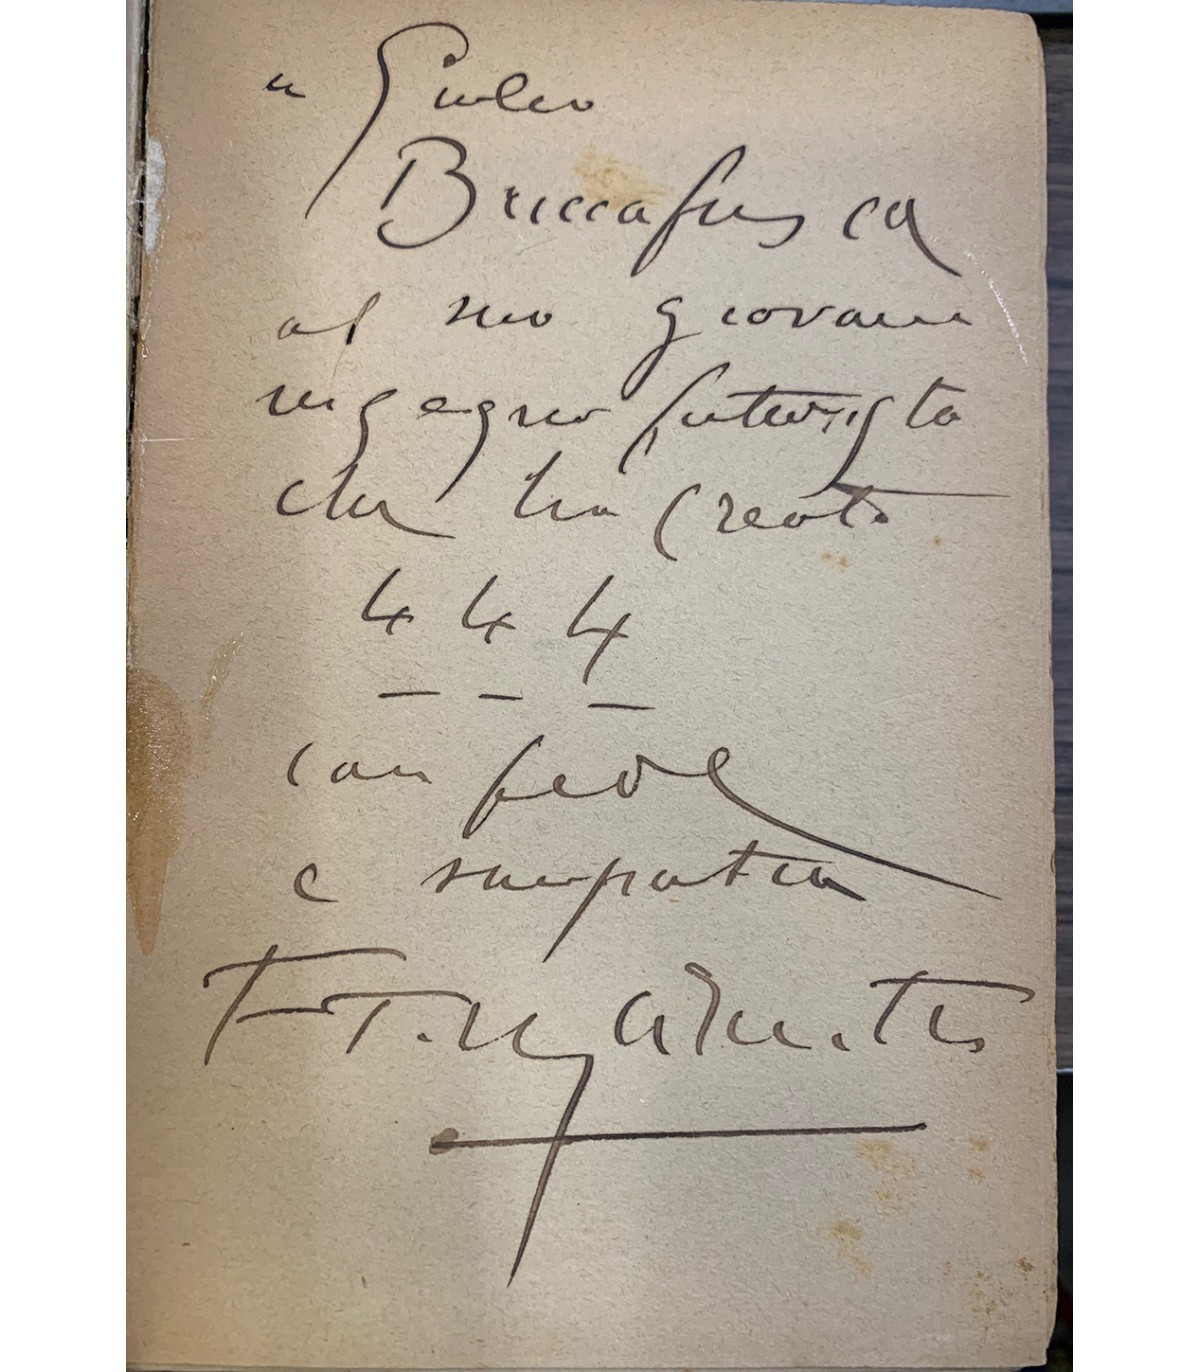 a Giulio
Briccafusca
al suo giovane
ingegno futurista
che ha creato
4 4 4
con fede
e simpatia
F.T. Marinetti